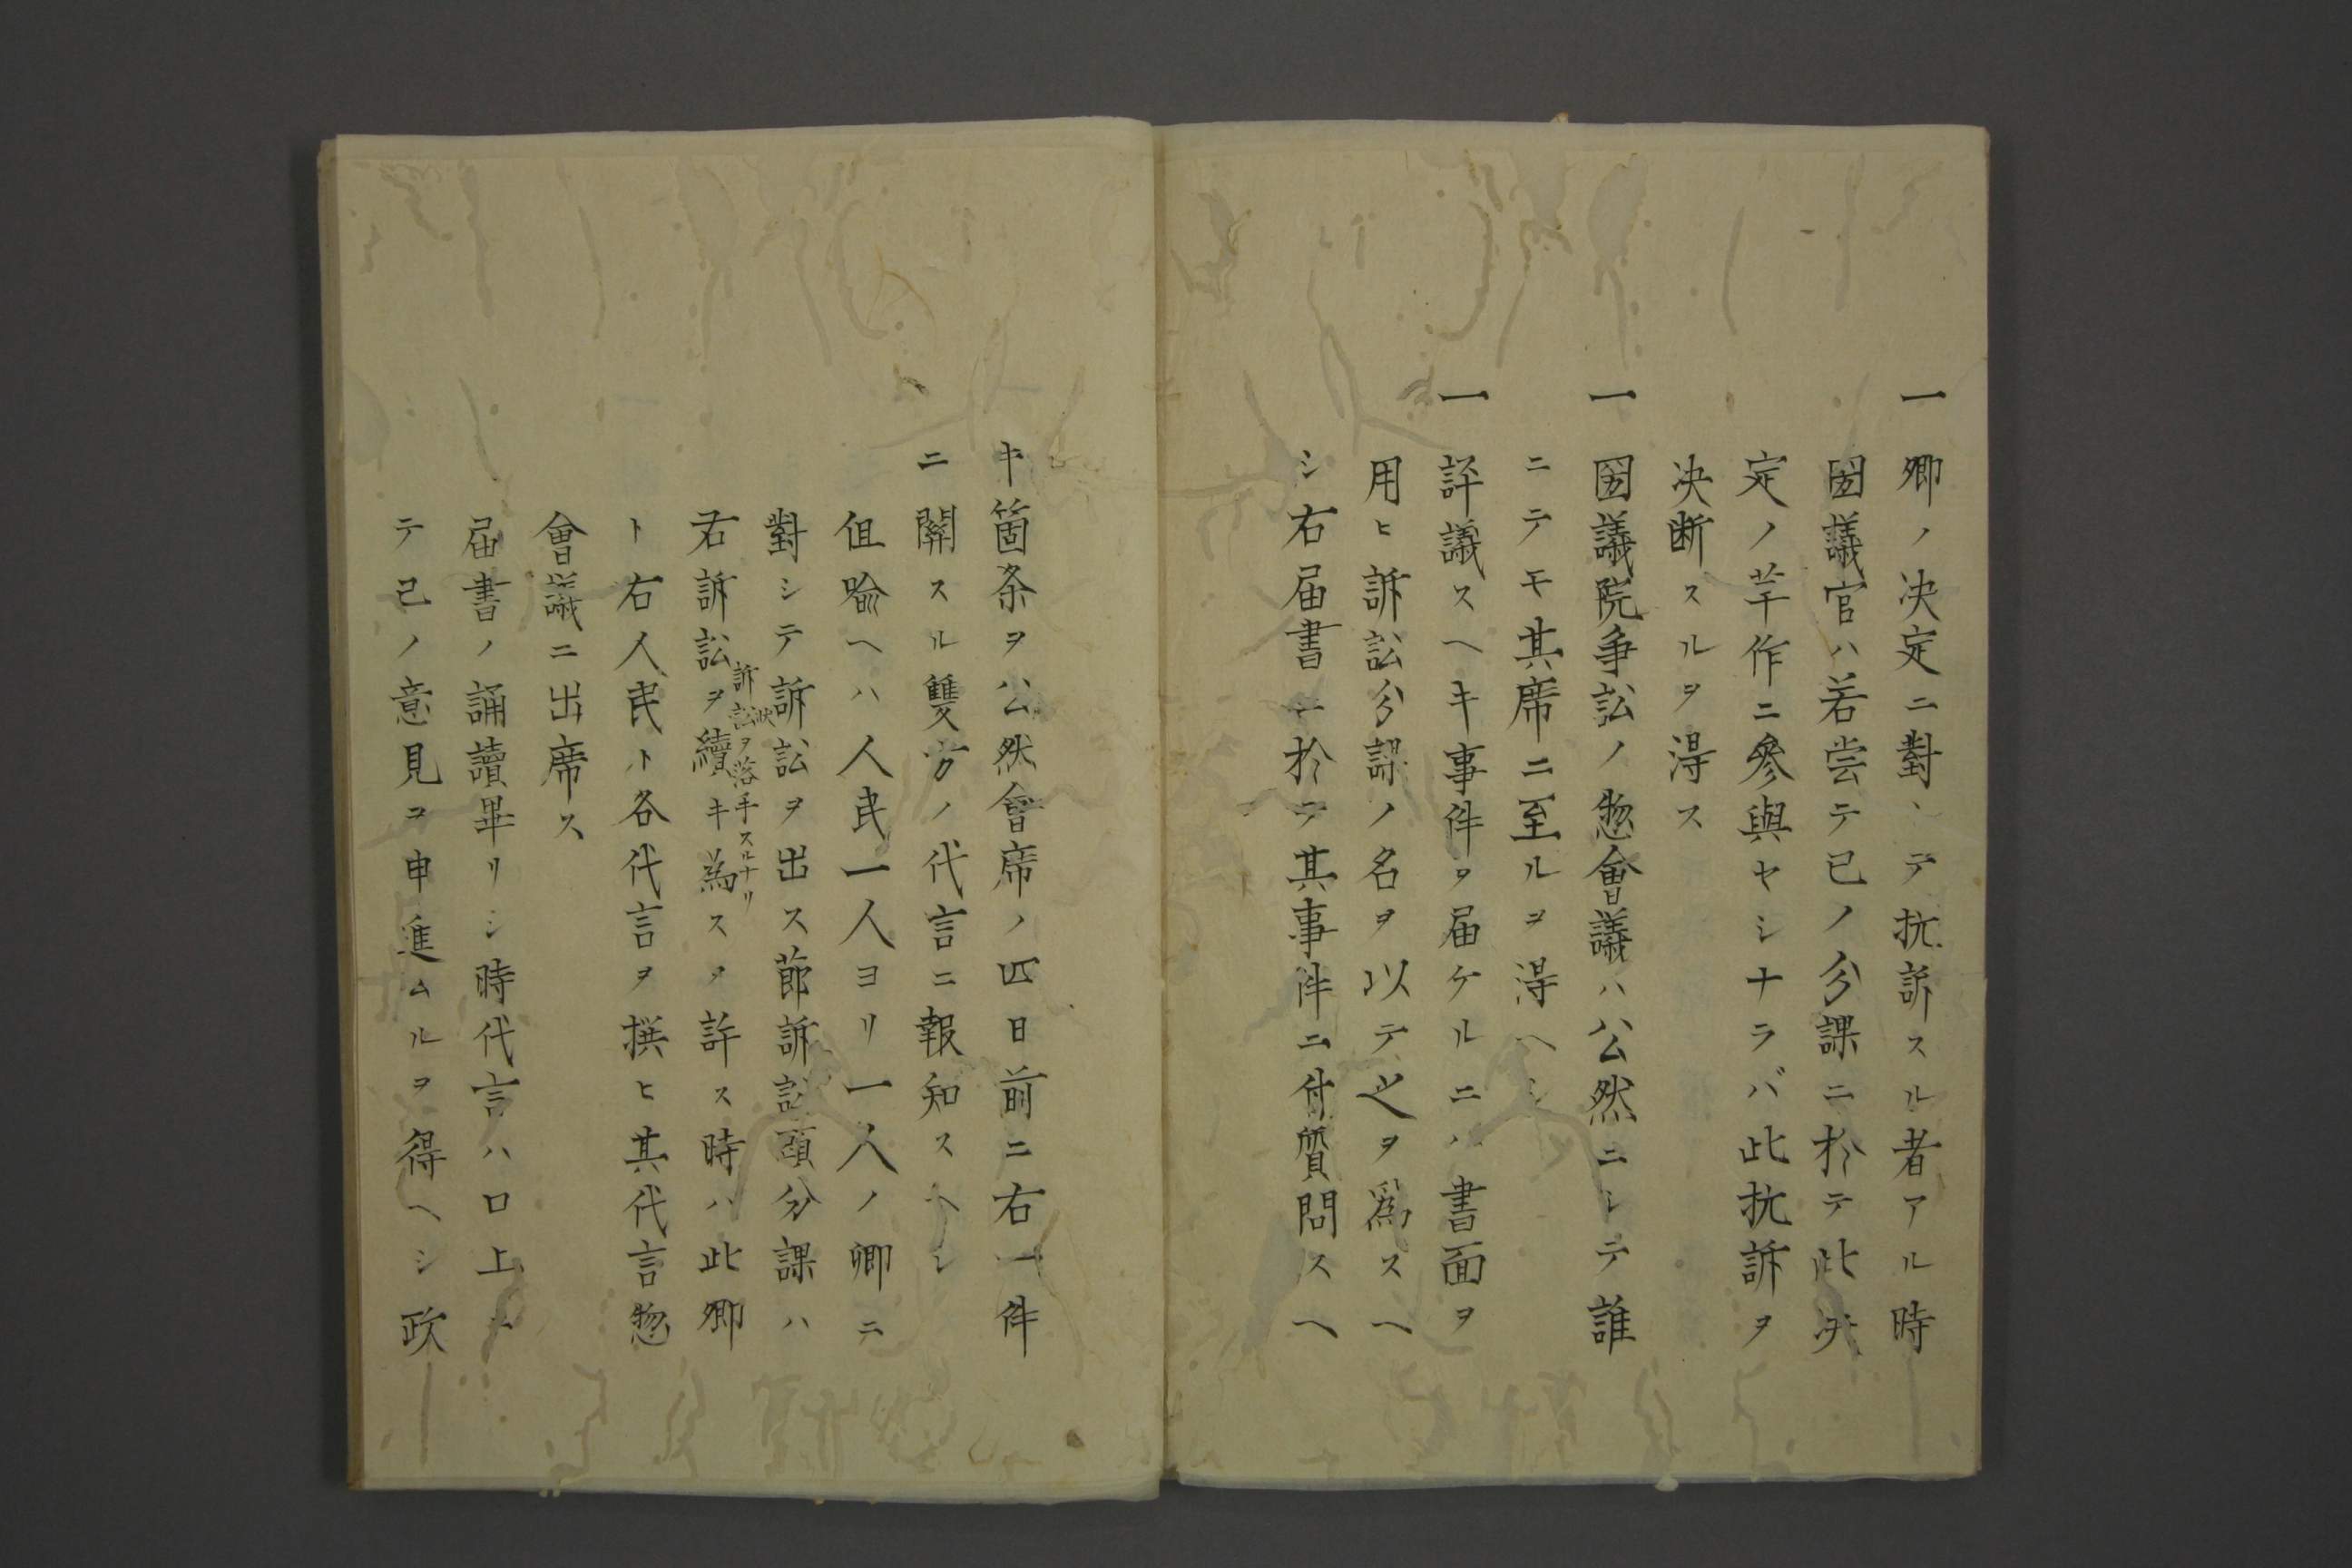 一卿ノ決定ニ對シテ抗訴スル者アル時
国議官ハ若尝テ已ノ分課ニ於テ此决
定ノ芉作ニ參與セシナラバ此抗訴ヲ
决断スルヲ淂ス
一国議院爭訟ノ惣會議ハ公然ニシテ誰
ニテモ其席ニ至ルヲ淂ヘシ
一評議スヘキ事件ヲ届ケルニハ書面ヲ
用ヒ訴訟分課ノ名ヲ以テ之ヲ為スヘ
シ右届書ニ於テ其事件ニ付質問スヘ
キ箇条ヲ公然會席ノ四日前ニ右一件
ニ關スル雙方ノ代言ニ報知スヘシ
伹喩ヘハ人民一人ヨリ一人ノ卿ニ
對シテ訴訟ヲ出ス節訴訟頭分課ハ
右訴訟ヲ續キ為スヲ許ス時ハ此卿
訴訟状ヲ落手スルナリ
ト右人民ト各代言ヲ撰ヒ其代言惣
會議ニ出席ス
届書ノ誦讀畢リシ時代言ハ口上ニ
テ己ノ意見ヲ申進ムルヲ得ヘシ政